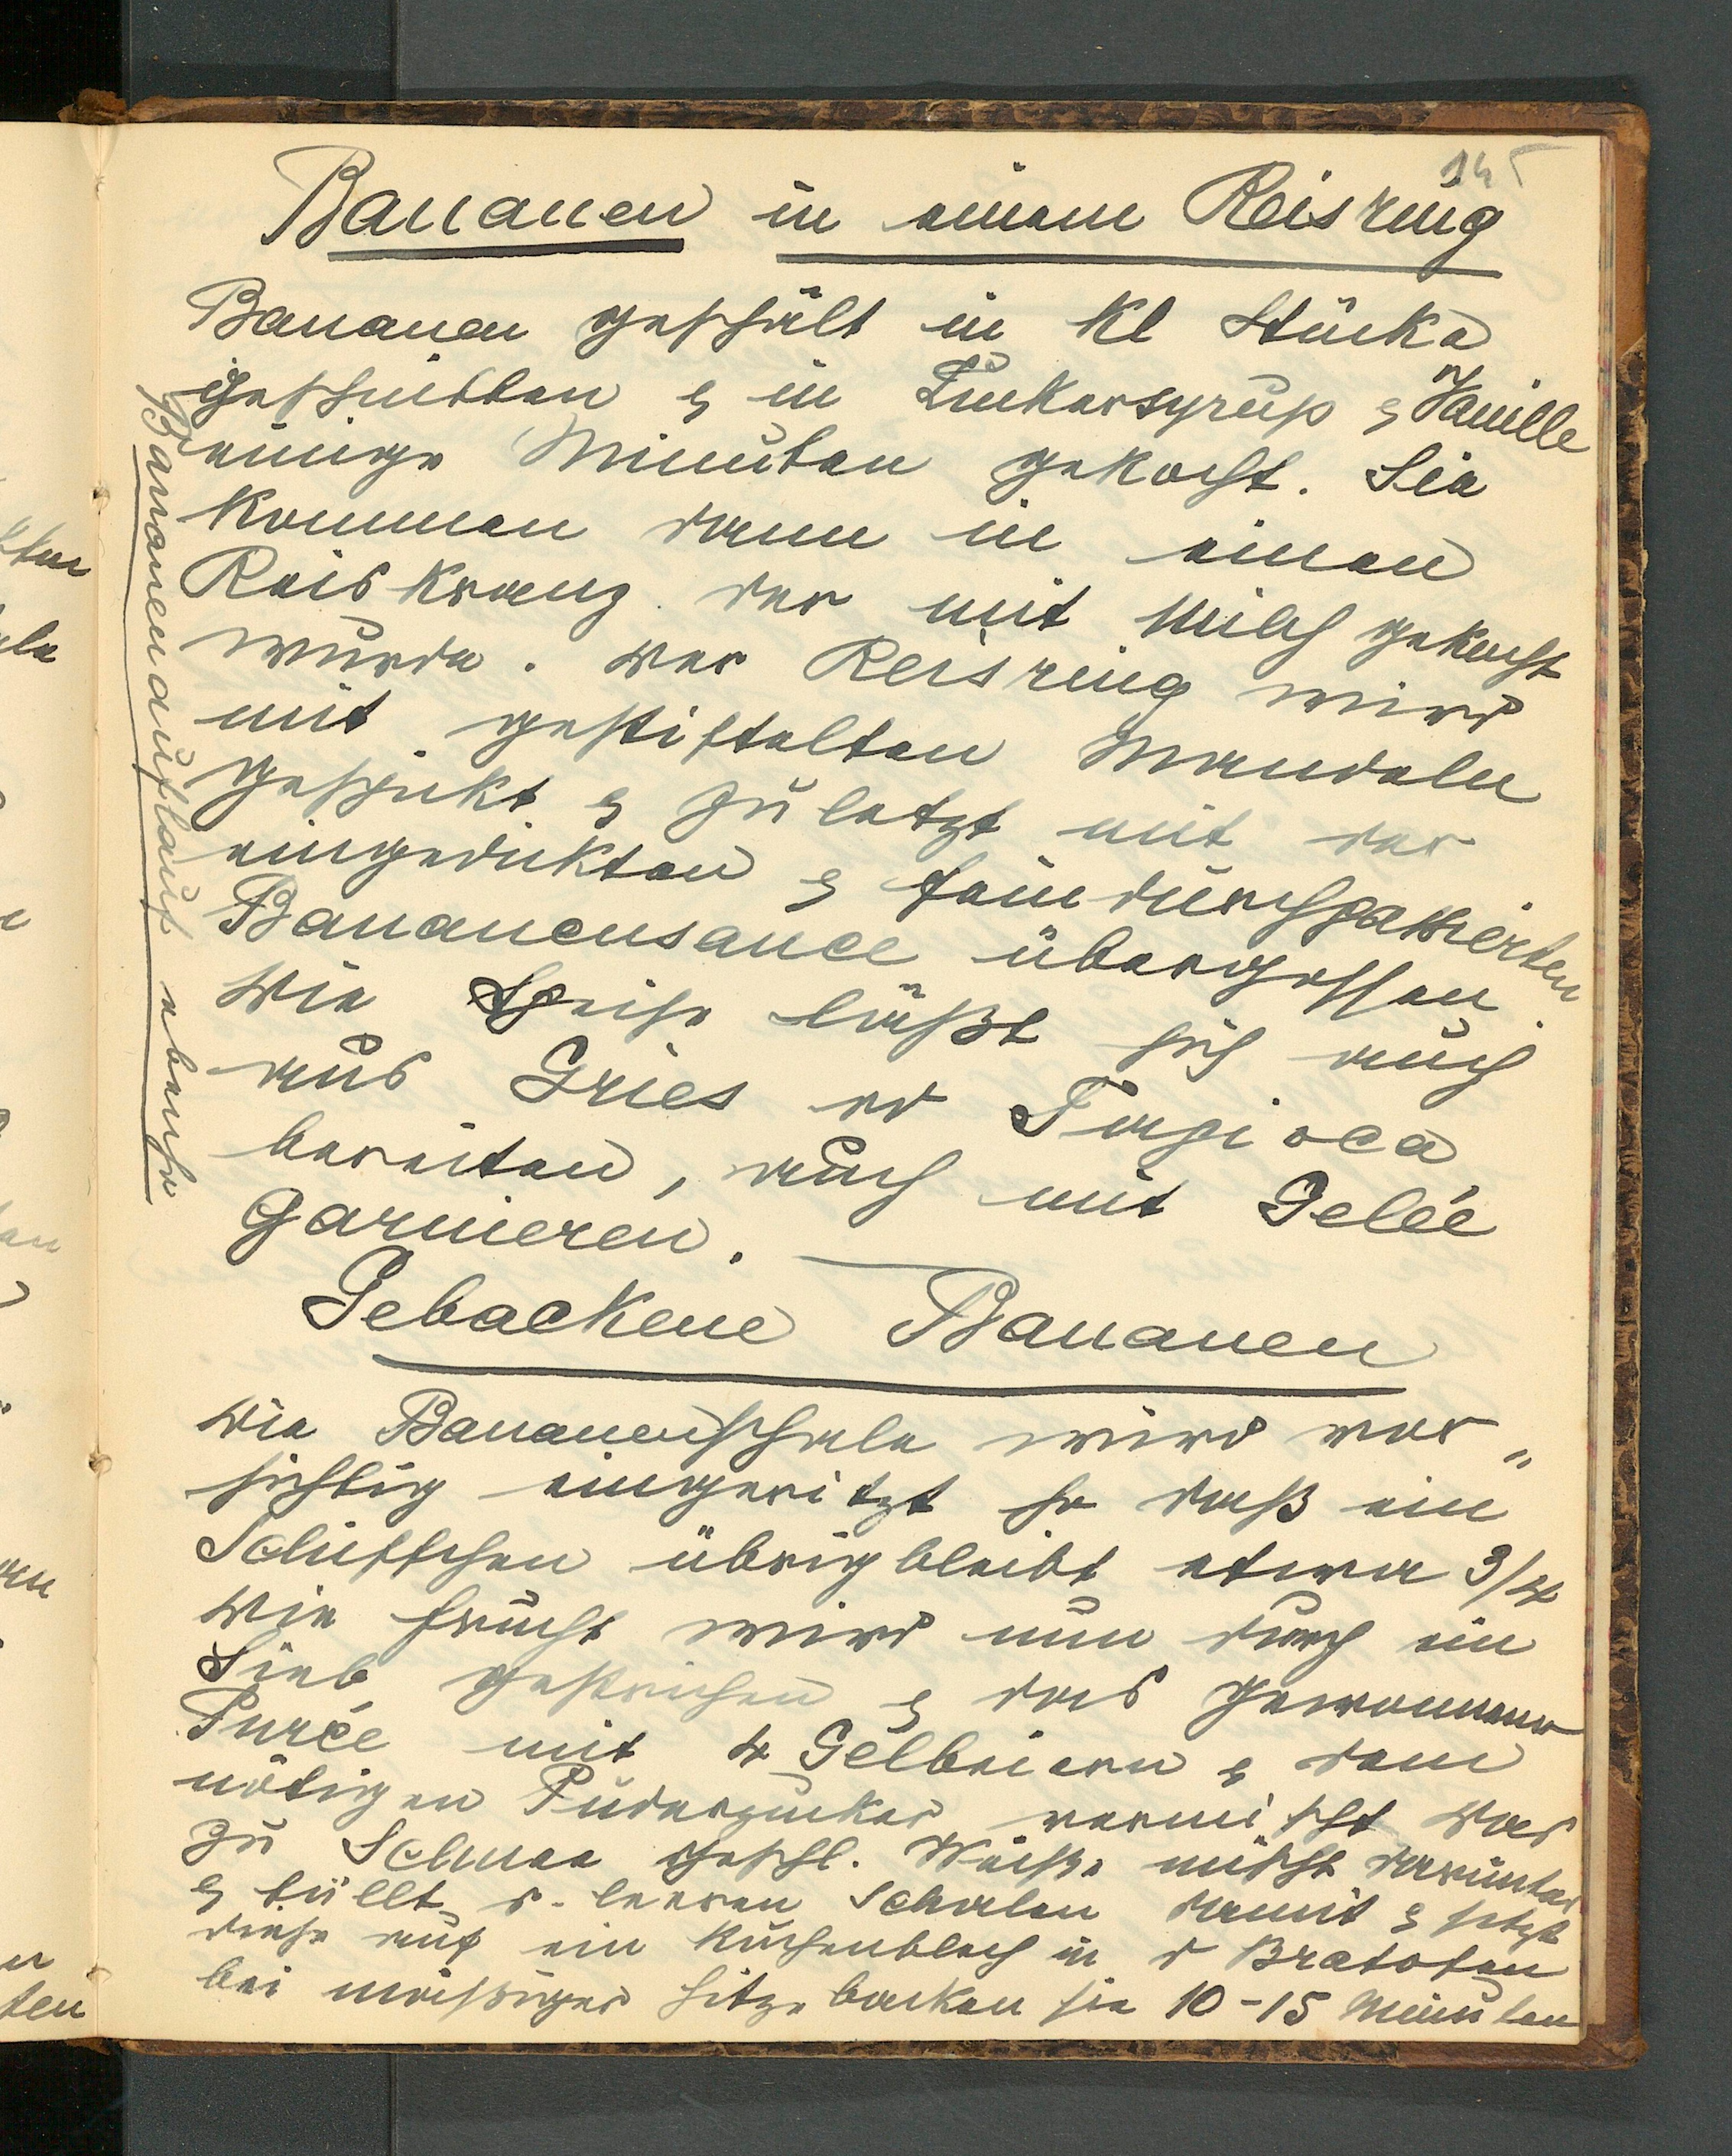 145
Bananen in einem Reisring
Bananen geschält in kl Stücke
geschnitten & in Zuckersyrup & Vanille
einige Minuten gekocht. Sie
kommen dann in einen
Reiskranz der mit Milch gekocht
wurde. Der Reisring wird
mit gestiftelten Mandeln
gespickt & zuletzt mit der
eingedickten & fein durchpassierten
Bananensauce übergossen.
Die Speise läßt sich auch
aus Gries od Tapioca
bereiten, auch mit Gelée
garnieren.
Gebackene Bananen
Die Bananenschale wird vor„
sichtig eingeritzt so daß ein
Schiffchen übrig bleibt etwa 3/4
Die Frucht wird nun durch ein
Sieb gestrichen & das gewonnene
Purée mit 4 Gelbeiern & dem
nötigen Puderzucker vermischt das
zu Schnee geschl. Weiße mischt darunter
& füllt d. leeren Schalen damit & setzt
diese auf ein Kuchenblech in d Bratofen
bei mäßiger Hitze backen sie 10-15 Minuten
Bananenauflauf ebenso